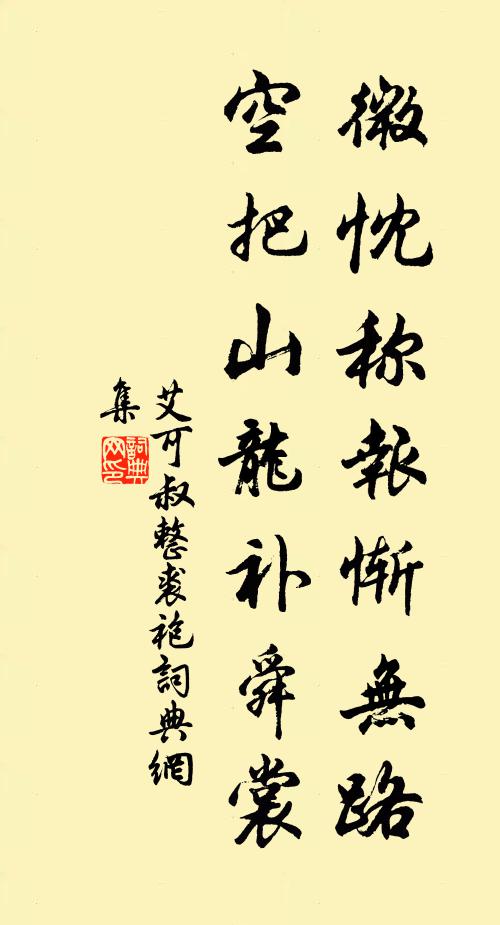 微忱称報慚無路
空把山龍补舜裳
艾可叔整裘袍詞典網
集
詞典
网印